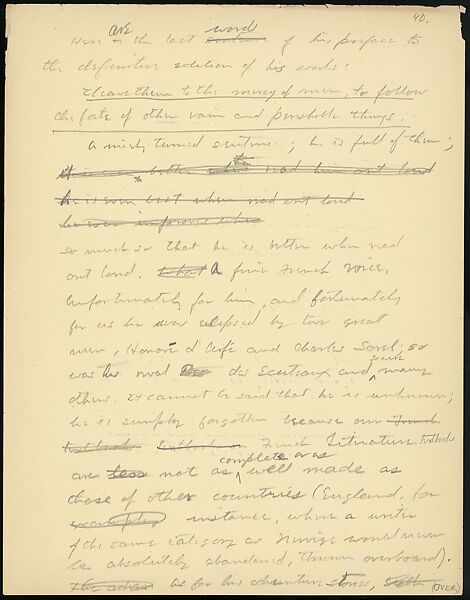 40.
are word
were in the last sentence of his preface to
the definitive edition of his works:
I leave them to the mercy of men, to follow
the fate of other vain and perishable things.
A nicely turned sentence; he is full of them;
better when read him out loud
he is even best when read out loud
he was
so much so that he is better when read
out loud. What A fine French voice.
Unfortunately for him, and fortunately
for us he was eclipsed by two great
men, Honoré d'Urfé and Charles Sorel, so
was his rival des Escuteaux and, many
others. It cannot be said that he is unknown;
he is simply forgotten because our French
text books French Literature textbooks
complete or as
are less not as well made as
those of other countries (England, for
example, instance, where a writer
of the same category as Nervèze would never
be absolutely abandoned, thrown overboard).
as for his adventure stories,
(OVER)